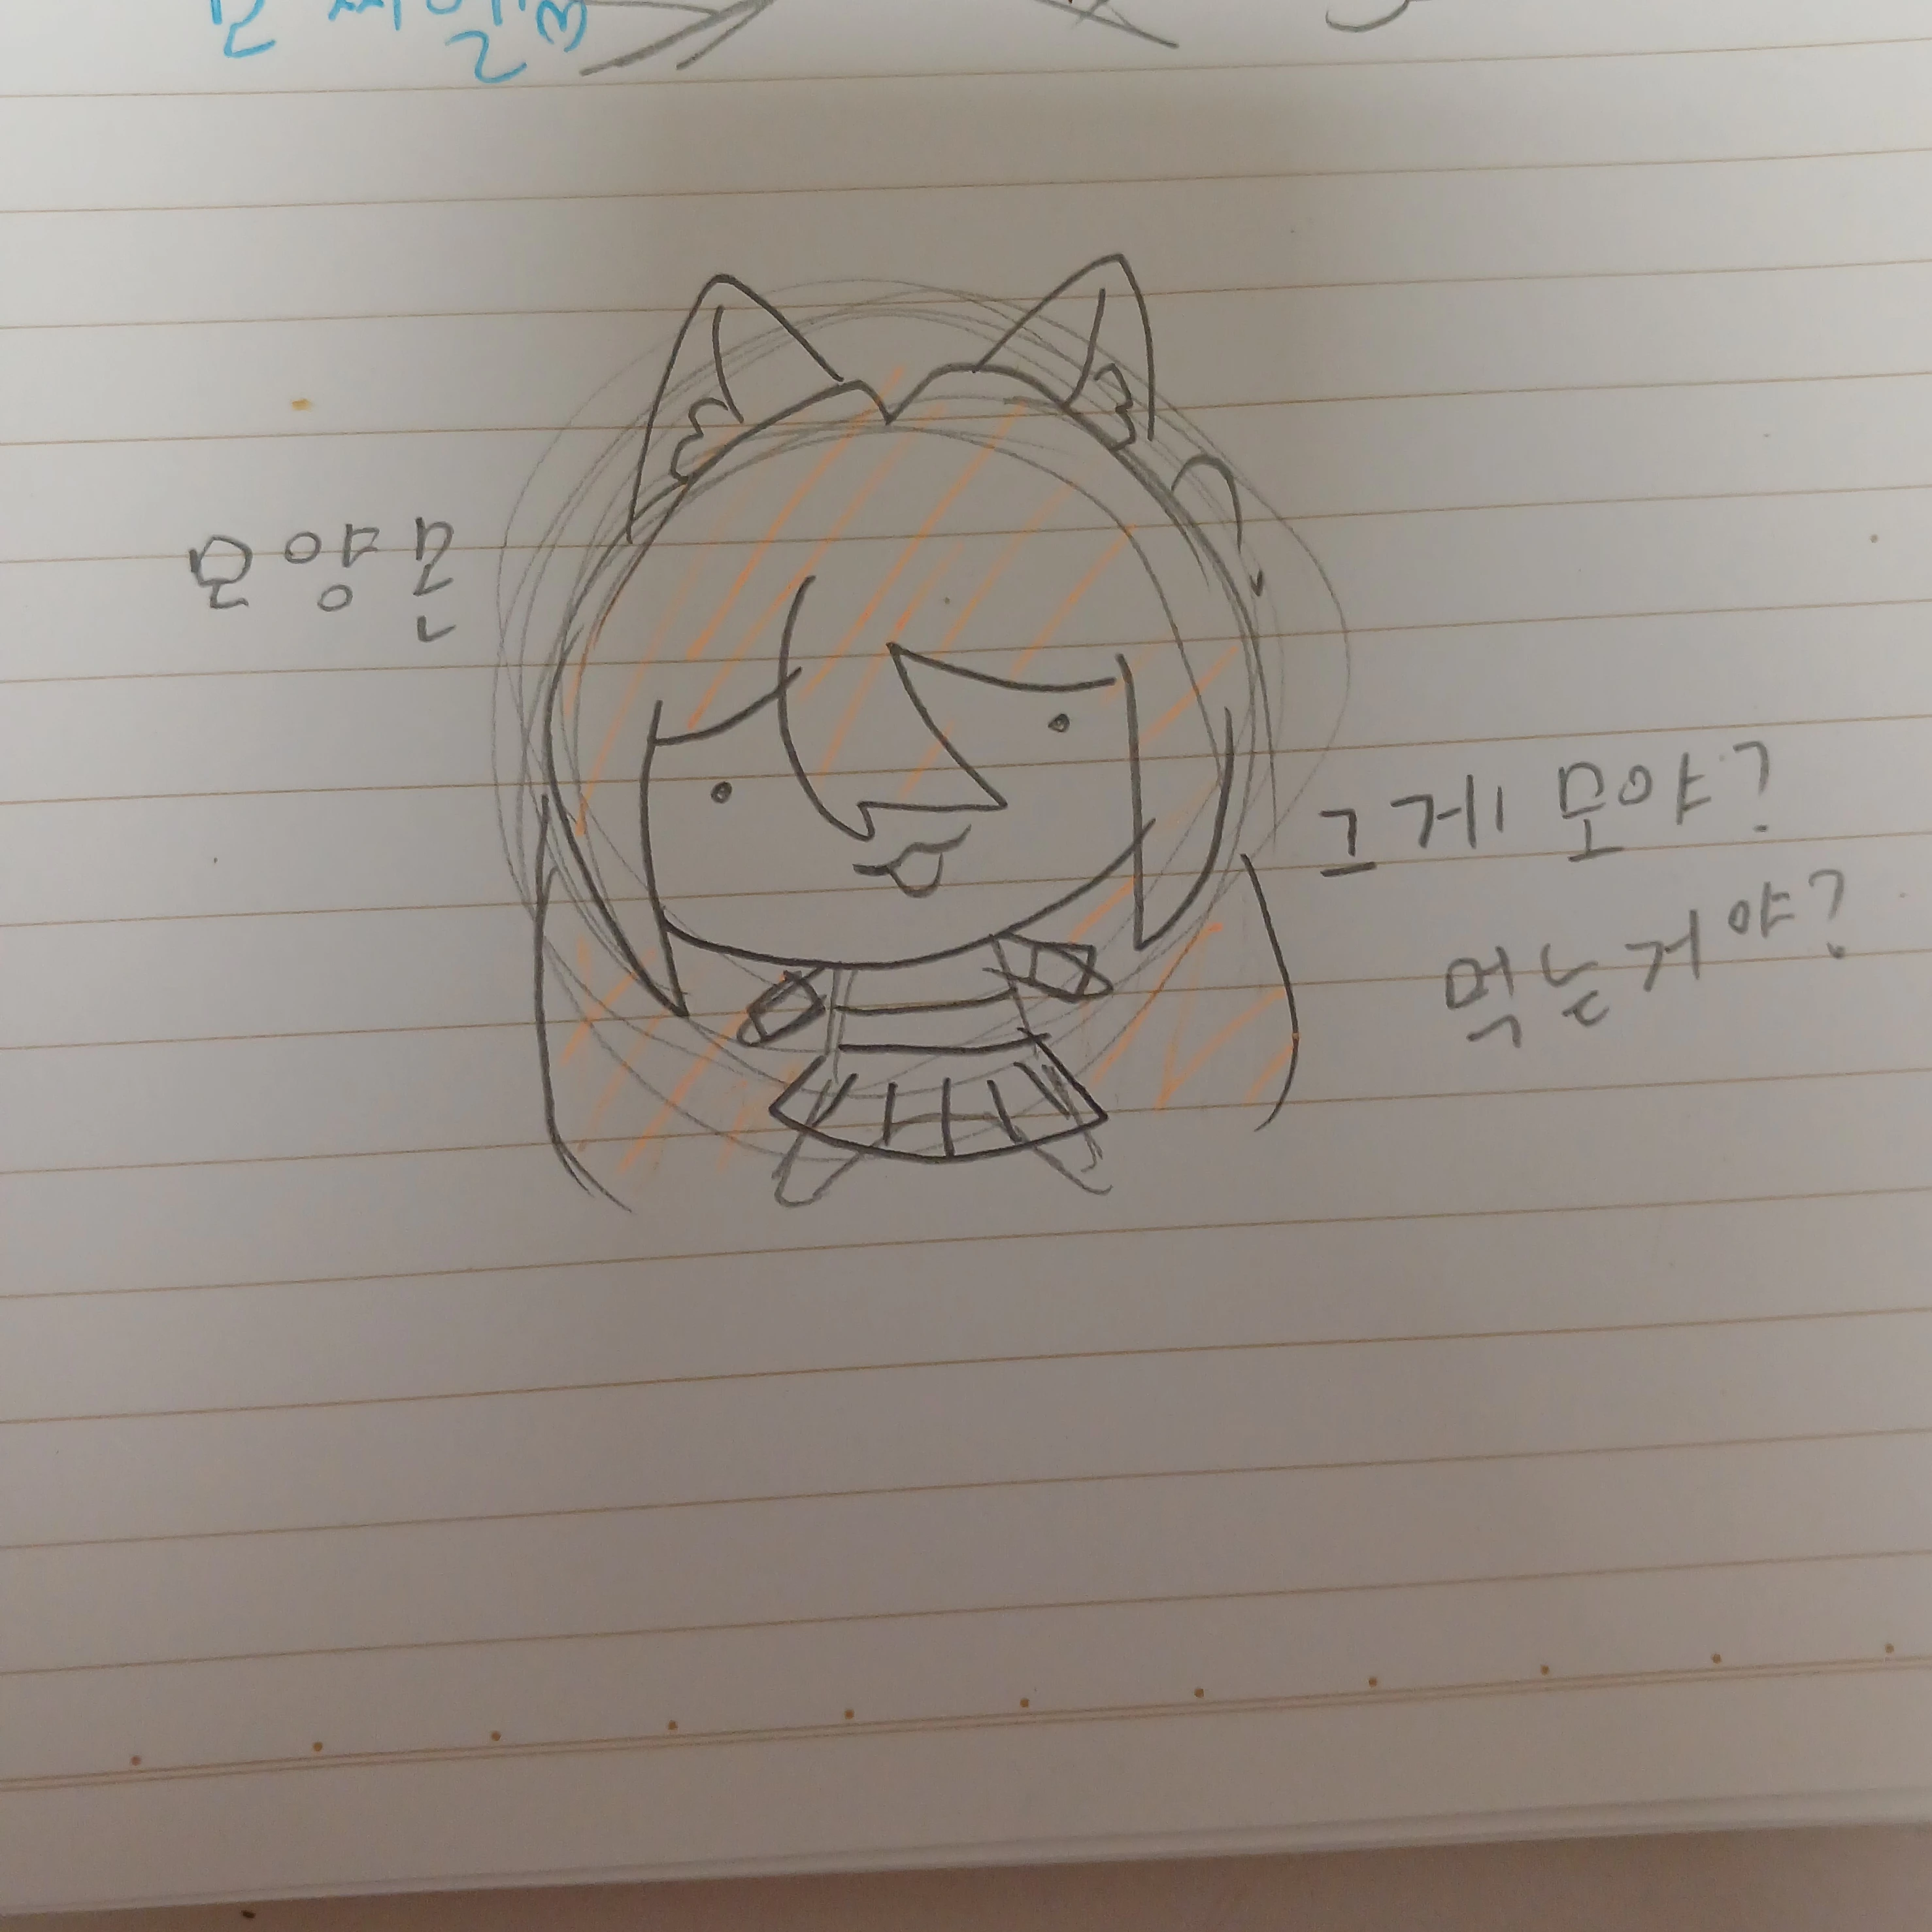 모양몬
그게 모야?
먹는거야?